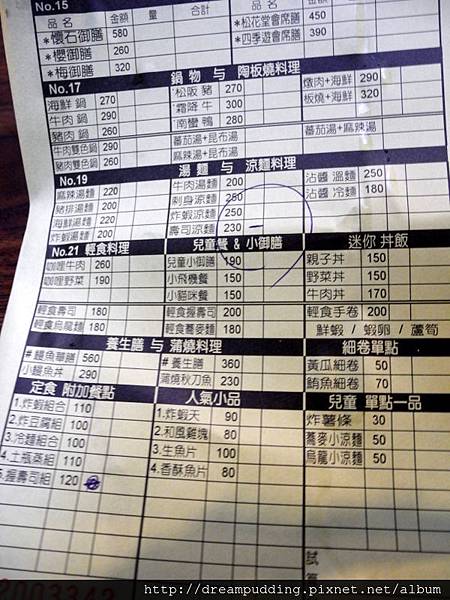 No.15 金額 量 合計 品名 金額
品名
*懷石御膳 580 *松花堂會席膳 450
*櫻御膳 260 *四季遊會席膳 390
*梅御膳 320
No.17 鍋物 与 陶板燒料理
海鮮鍋 270 松阪豬 270 燉肉+海鮮 290
牛肉鍋 290 霜降牛 300 板燒+海鮮 320
豬肉鍋 260 南蠻鴨 280
牛肉雙色鍋 290 蕃茄湯+昆布湯 蕃茄湯+麻辣湯
豬肉雙色鍋 260 麻辣湯+昆布湯
No.19 湯麵 与 涼麵料理
麻辣湯麵 220 牛肉湯麵 200 沾醬溫麵 250
豬排湯麵 200 刺身涼麵 250 沾醬冷麵 180
海鮮湯麵 220 炸蝦涼麵 250
炸蝦湯麵 200 壽司涼麵 230
No.21 輕食料理 兒童餐 & 小御膳 迷你 丼飯
咖哩牛肉 260 兒童小御膳 190 親子丼 150
咖哩野菜 190 小飛機餐 150 野菜丼 150
小貓咪餐 150 牛肉丼 170
輕食壽司 180 輕食握壽司 200 輕食手卷 200
輕食烏龍麵 180 輕食蕎麥麵 180 鮮蝦 / 蝦卵 / 蘆筍
養生膳 与 蒲燒料理 細卷單點
#鰻魚華膳 560 #養生膳 360 黃瓜細卷 50
小鰻魚丼 290 蒲燒秋刀魚 230 鮪魚細卷 70
定食 附加餐點 人氣小品 兒童 單點一品
1.炸蝦組合 110 1.炸蝦天 90 炸薯條 30
2.炸豆腐組 100 2.和風雞塊 80 蕎麥小涼麵 50
3.冷麵組合 100 3.生魚片 100 烏龍小涼麵 50
4.土瓶蒸組 110 4.香酥魚片 80
5.握壽司組 120
http://dreampudding.pixnet.net/album